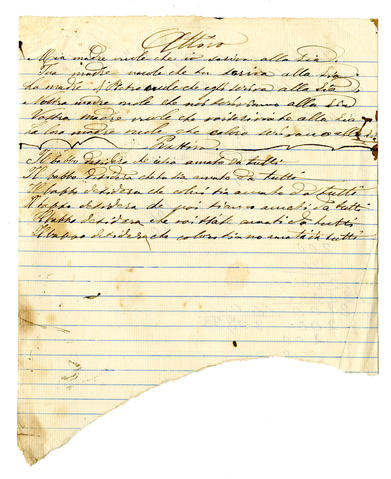 Attivo
Mia madre vuole che io scriva alla zia
Tua madre vuole che tu scriva alla zia
La madre di Pietro vuole che egli scriva alla zia
Nostra madre vuole che noi scriviamo alla zia
Vostra madre vuole che voi scriviate alla zia
La loro madre vuole che coloro scrivano alla zia
Passivo
Il babbo desidera che io sia amato da tutti
Il babbo desidera che tu sia amato da tutti
Il babbo desidera che colui sia amato da tutti
Il babbo desidera che noi siamo amati da tutti
Il babbo desidera che voi siate amati da tutti
Il babbo desidera che coloro siano amati da tutti